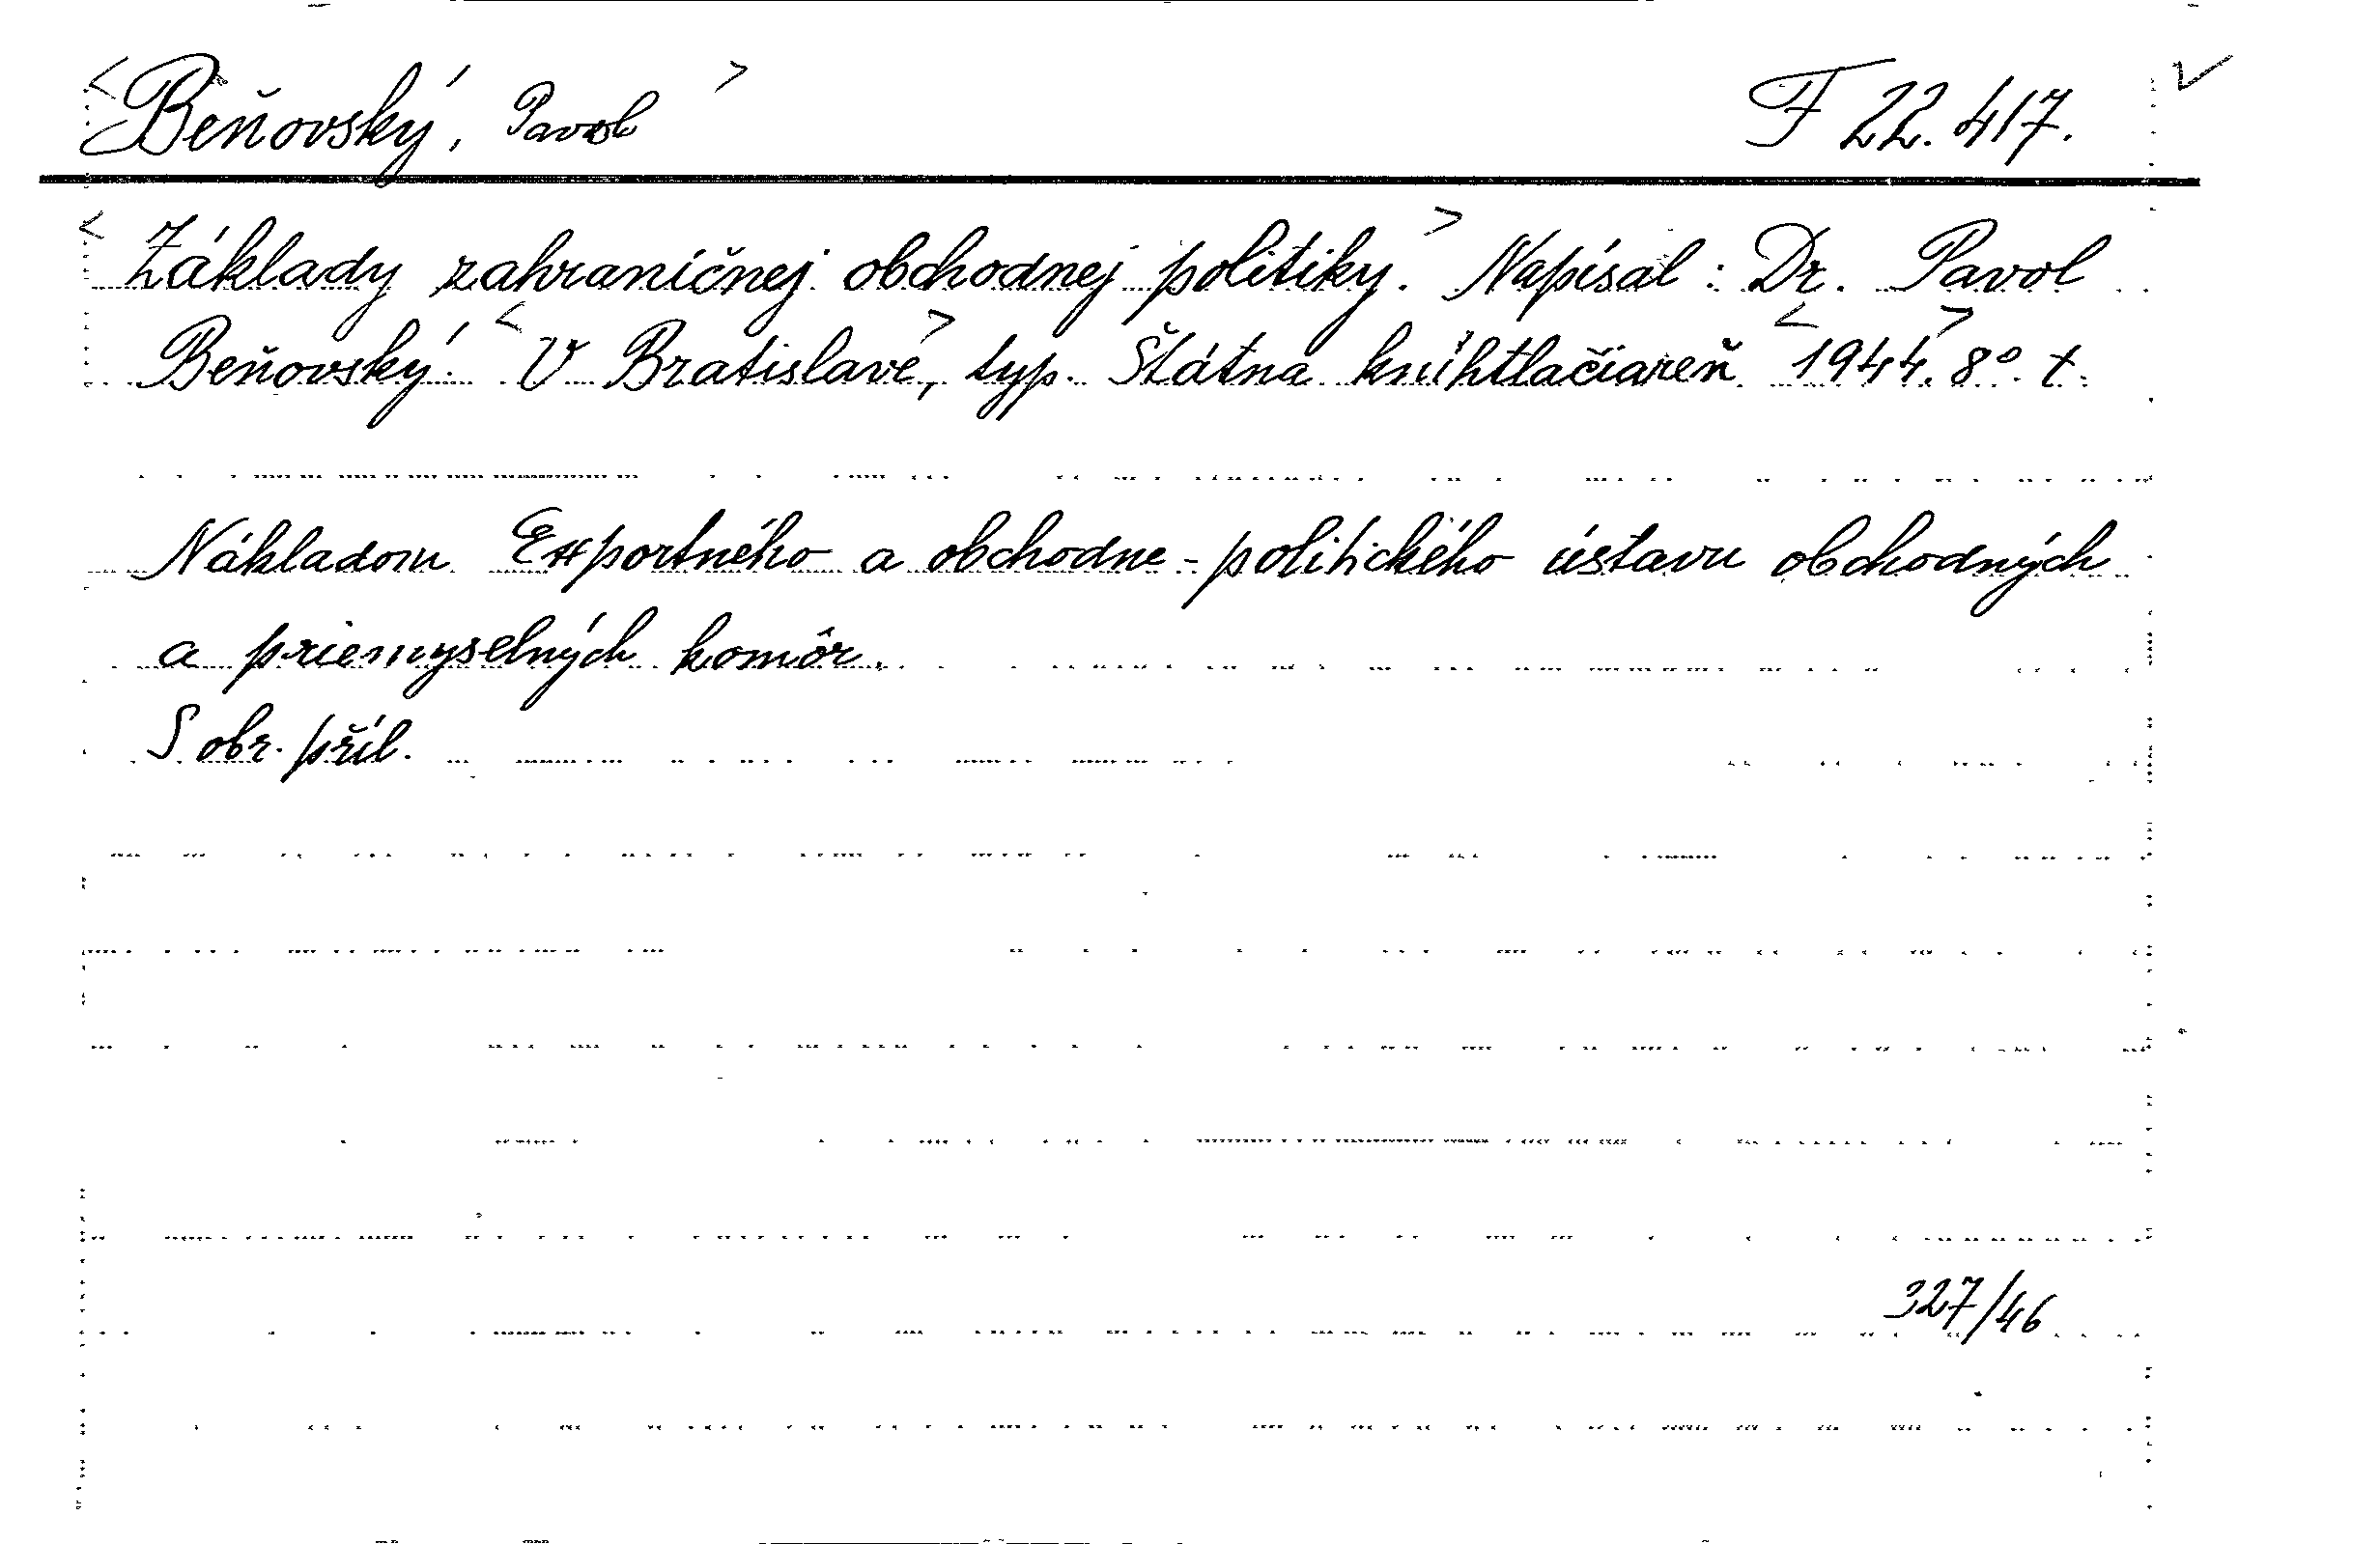 <Beňovský, Pavol> F 22.417. ✓
<Základy zahraničnej obchodnej politiky.> Napísal: Dr. Pavol
Beňovský. <V Bratislave>, typ. Štátna kníhtlačiareň <1944>. 8°. t.
Nákladom Exportného a obchodne-politického ústavu obchodných
a priemyselných komôr.
S obr. příl.
327/46